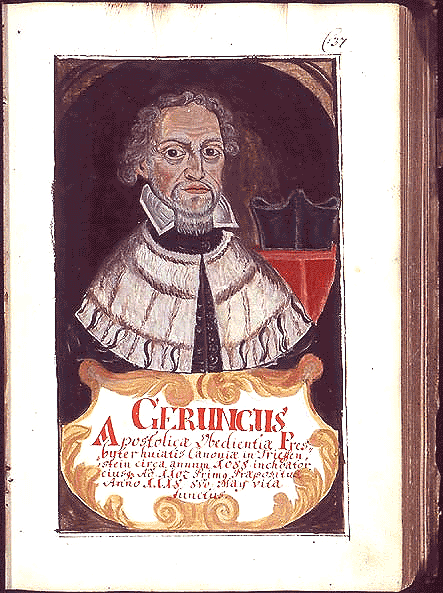 137
GERUNGUS
Apostolicæ Obedientiæ Pres-
byter huiatis Canoniæ in Trieffen,
stein circa annum 1088 inchoator
eiusq; Ao 1102 Primo Præpositus
Anno 1115 8vo Maÿ vita
functus.